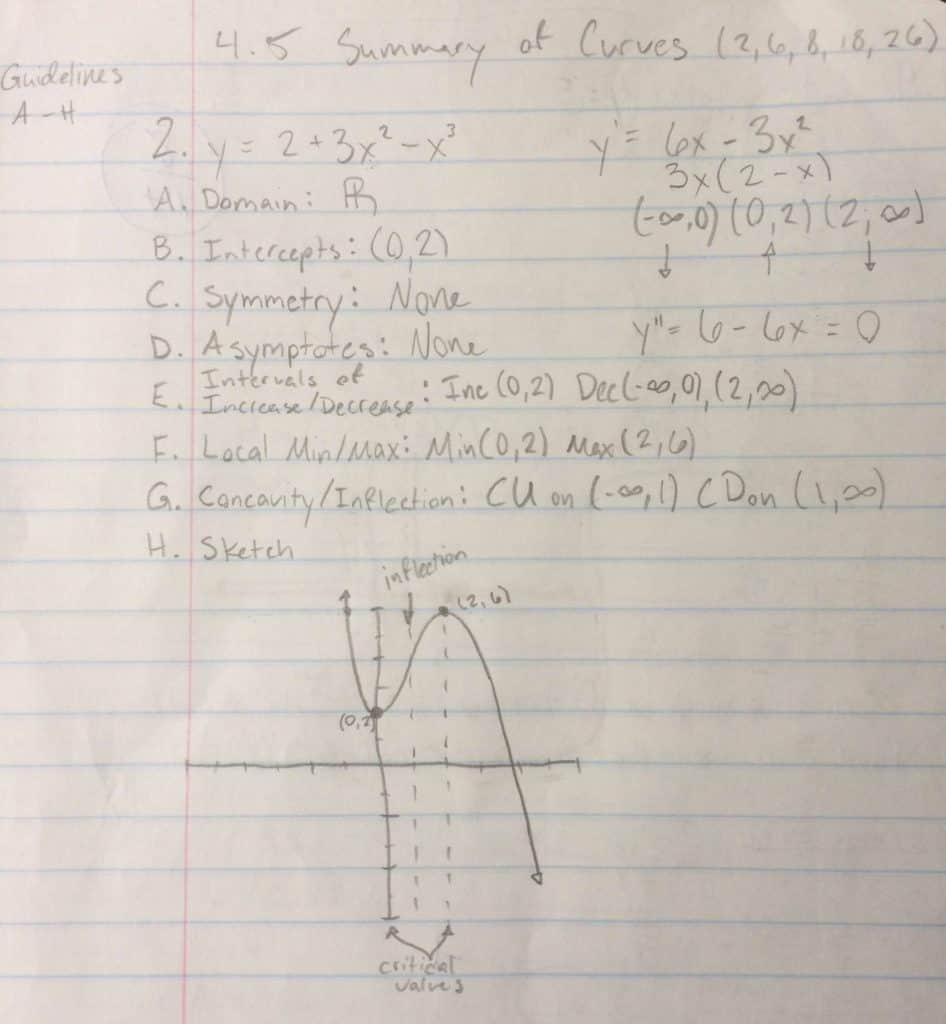 4.5 Summary of Curves (2, 6, 8, 18, 26)
Guidelines
A-H
2. y = 2 + 3x² - x³
y' = 6x - 3x²
3x(2 - x)
(-∞,0) (0,2) (2,∞)
↓ ↑ ↓
A. Domain: ℝ
B. Intercepts: (0,2)
C. Symmetry: None
D. Asymptotes: None
y'' = 6 - 6x = 0
E. Intervals of
Increase/Decrease : Inc (0,2) Dec(-∞,0), (2,∞)
F. Local Min/Max: Min(0,2) Max(2,6)
G. Concavity/Inflection: CU on (-∞,1) CD on (1,∞)
H. Sketch
inflection
(2,6)
(0,2)
critical
values